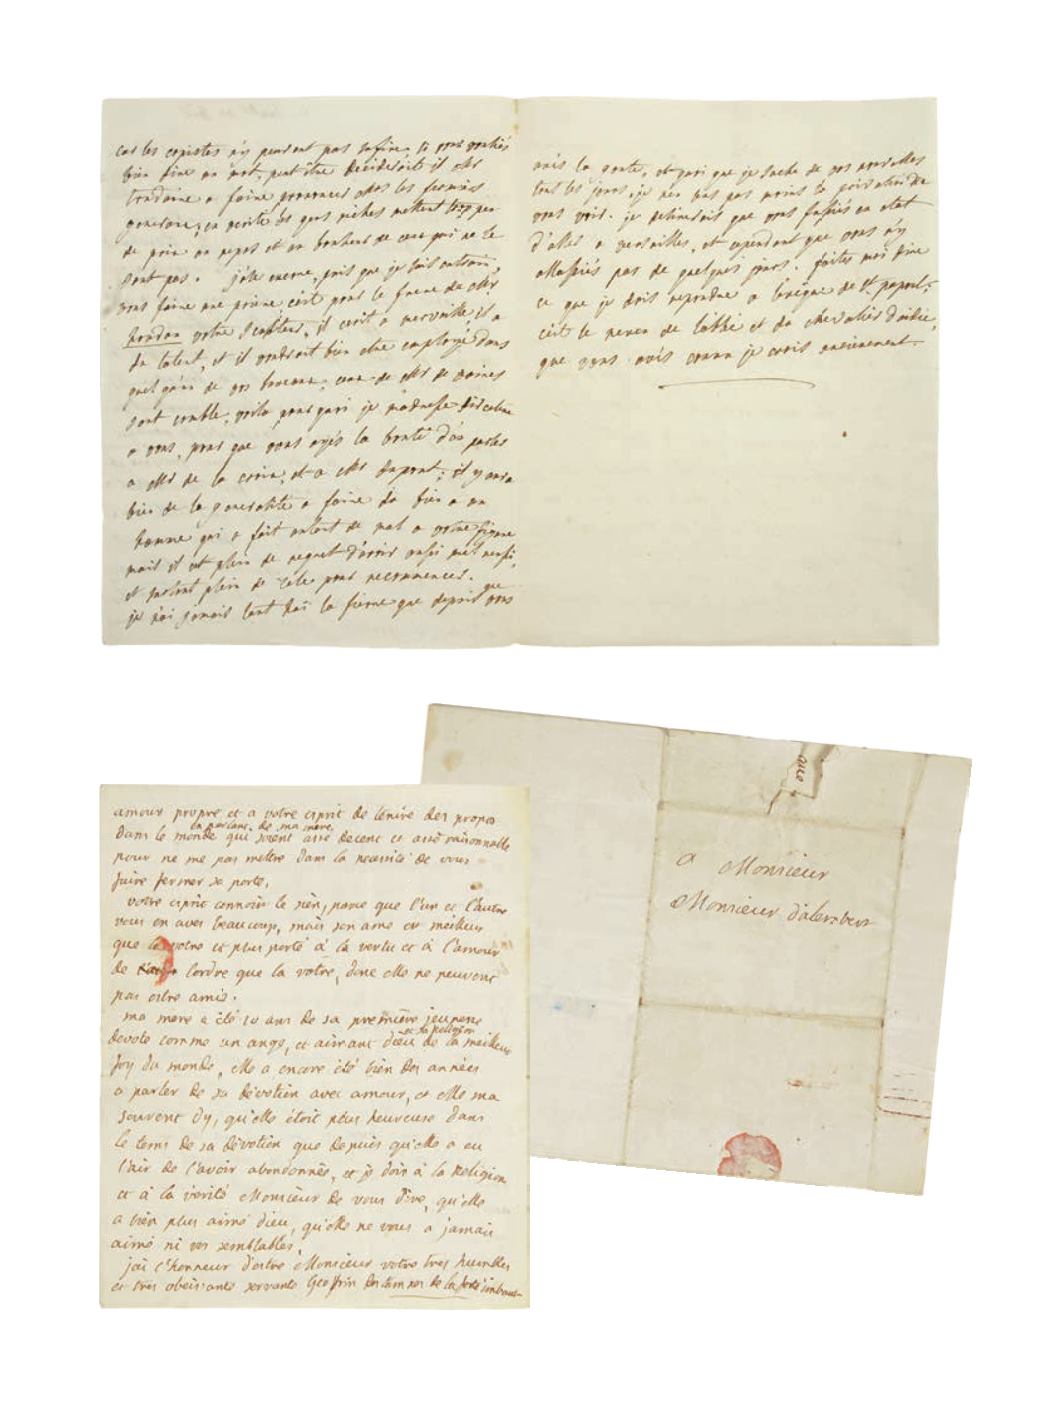 car les copistes n'y peuvent pas sufire. si vous vouliés
bien dire un mot, peut être decideroit il Mr
trudaine a faire prononcer Mrs les fermiers
generaux; en verité les gens riches mettent trop peu
de prix au repos et au bonheur de ceux qui ne le
sont pas. j'ose encore, puis que je suis en train,
vous faire une priere, c'est pour le frere de Mr
houdon votre sculpteur, il ecrit a merveille, il a
du talent, et il voudroit bien etre employé dans
quel qu'un de vos bureaux;
sont comble, voila pourquoi je m'adresse
a vous, pour que vous ayés la bonté d'en parler
a Mr de la croix, et a Mr dupont; il y aura
bien de la generosité a faire du bien a un
homme qui a fait autant de mal a votre figure
mais il est plein de regret d'avoir aussi mal reussi,
et surtout plein de zele pour recommencer.
je n'ai jamais tant haï la fievre que depuis que vous
avés la goute, et quoi que je sache de vos nouvelles
tous les jours, je n'en suis pas moins
vous voir. je desirerois que vous fussiés en etat
d'aller a versailles, et cependant que vous n'y
allassiés pas de quelques jours. faites moi dire
ce que je dois repondre a l'eveque de St papoul;
c'est le neveu de l'abbé et du chevalier d'aidie,
que vous avés connu je crois anciennement.
amour propre et a votre esprit de tenire des propos
dans le monde en parlant de ma mere, qui soient assé decent et assé raisonnable
pour ne me pas mettre dans la necessité de vous
faire fermer sa porte,
votre esprit connoit le sien, parce que l'un et l'autre
vous en avez beaucoup, mais son ame est meilleur
que la votre et plus porté à la vertu et à l'amour
de l'ordre que la votre, donc elle ne peuvent
pas estre amis.
ma mere a été 20 ans de sa première jeunesse
devote comme un ange, et aimant dieu et sa religion de la meilleur
foy du monde, elle a encore été bien des années
a parler de sa dévotion avec amour, et elle ma
souvent dy, qu'elle étoit plus heureuse dans
le tems de sa dévotion que depuis qu'elle a eu
l'air de l'avoir abondonnée, et je dois à la Religion
et à la verité Monsieur de vous dire, qu'elle
a bien plus aimé dieu, qu'elle ne vous a jamais
aimé ni vos semblables,
jai l'honneur d'estre Monsieur votre tres humbles
et tres obeissante servante Geoffrin D'estampes de la ferté imbault
a Monsieur
Monsieur d'alembert